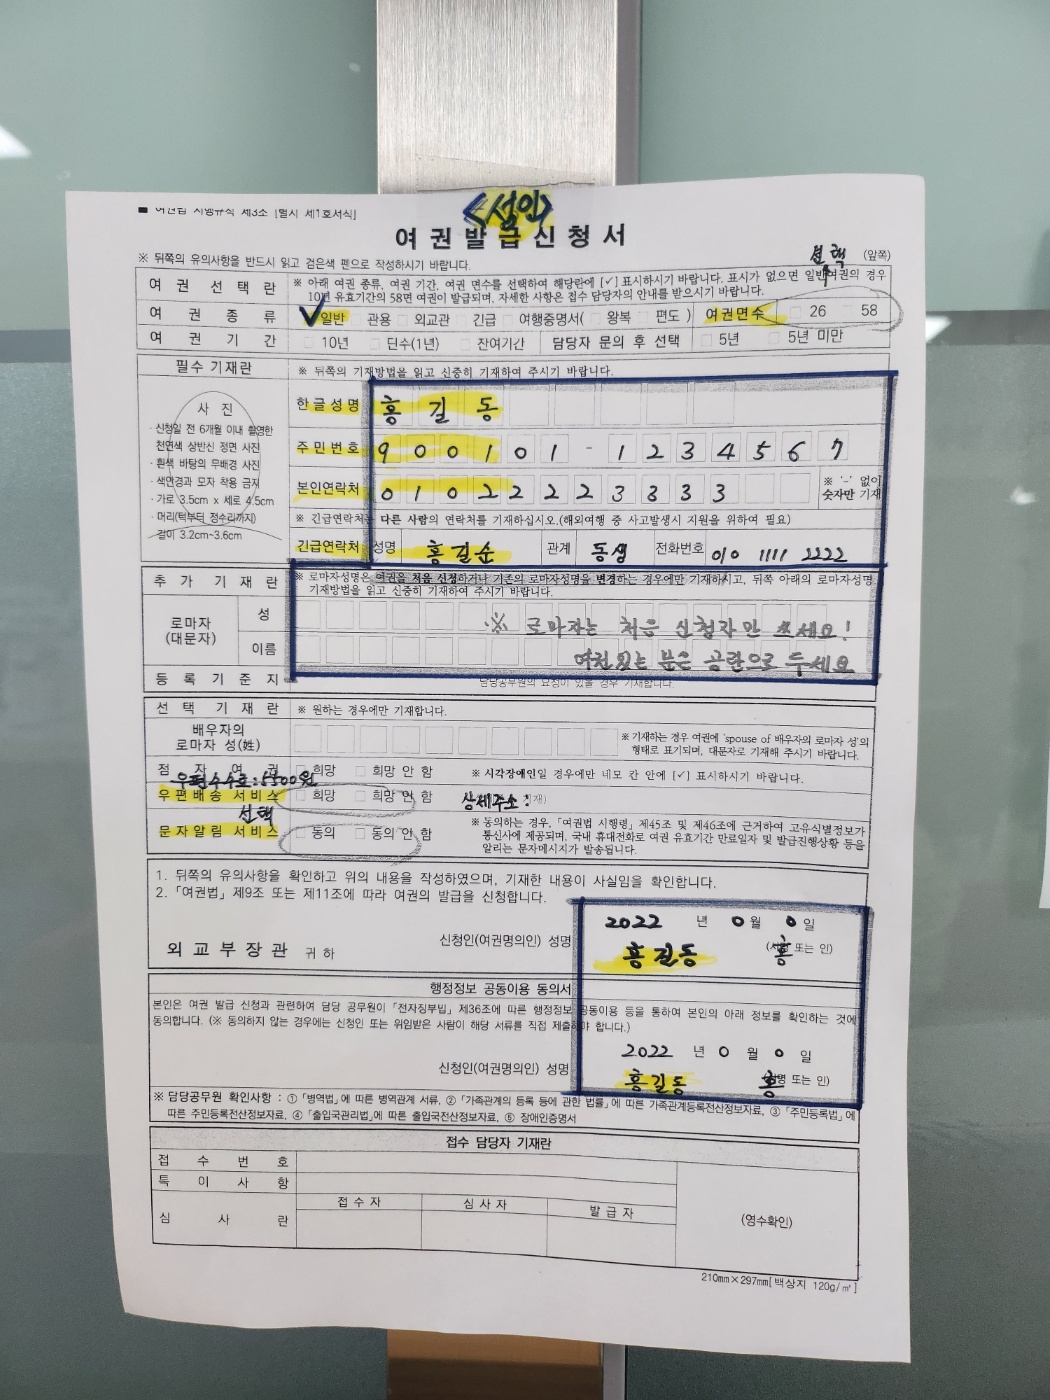 <성인>
■ 여권법 시행규칙 제3조 [별지 제1호서식]
여 권 발 급 신 청 서
선택
※ 뒤쪽의 유의사항을 반드시 읽고 검은색 펜으로 작성하시기 바랍니다. (앞쪽)
여 권 선 택 란 ※ 아래 여권 종류, 여권 기간, 여권 면수를 선택하여 해당란에 [✓] 표시하시기 바랍니다. 표시가 없으면 일반여권의 경우
10년 유효기간의 58면 여권이 발급되며, 자세한 사항은 접수 담당자의 안내를 받으시기 바랍니다.
여 권 종 류 ✓ 일반 관용 외교관 긴급 여행증명서( 왕복 편도 ) 여권면수 26 58
여 권 기 간 10년 단수(1년) 잔여기간 담당자 문의 후 선택 5년 5년 미만
필수 기재란 ※ 뒤쪽의 기재방법을 읽고 신중히 기재하여 주시기 바랍니다.
사 진
· 신청일 전 6개월 이내 촬영한
천연색 상반신 정면 사진
· 흰색 바탕의 무배경 사진
· 색안경과 모자 착용 금지
· 가로 3.5cm x 세로 4.5cm
· 머리(턱부터 정수리까지)
길이 3.2cm~3.6cm
한글성명 홍 길 동
주민번호 9 0 0 1 0 1 - 1 2 3 4 5 6 7
본인연락처 0 1 0 2 2 2 2 3 3 3 3 ※ '-' 없이
숫자만 기재
※ 긴급연락처는 다른 사람의 연락처를 기재하십시오.(해외여행 중 사고발생시 지원을 위하여 필요)
긴급연락처 성명 홍길순 관계 동생 전화번호 010 1111 2222
추 가 기 재 란 ※ 로마자성명은 여권을 처음 신청하거나 기존의 로마자성명을 변경하는 경우에만 기재하시고, 뒤쪽 아래의 로마자성명
기재방법을 읽고 신중히 기재하여 주시기 바랍니다.
로마자
(대문자)
성 ※ 로마자는 처음 신청자만 쓰세요!
이름 여권있는 분은 공란으로 두세요
등 록 기 준 지 담당공무원의 요청이 있을 경우 기재합니다.
선 택 기 재 란 ※ 원하는 경우에만 기재합니다.
배우자의
로마자 성(姓)
※ 기재하는 경우 여권에 'spouse of 배우자의 로마자 성'의
형태로 표기되며, 대문자로 기재해 주시기 바랍니다.
점 자 여 권 희망 희망 안 함 ※ 시각장애인일 경우에만 네모 칸 안에 [✓] 표시하시기 바랍니다.
우편수수료:5500원
우편배송 서비스 희망 희망 안 함 상세주소 :
선택
문자알림 서비스 동의 동의 안 함
※ 동의하는 경우, 「여권법 시행령」 제45조 및 제46조에 근거하여 고유식별정보가
통신사에 제공되며, 국내 휴대전화로 여권 유효기간 만료일자 및 발급진행상황 등을
알리는 문자메시지가 발송됩니다.
1. 뒤쪽의 유의사항을 확인하고 위의 내용을 작성하였으며, 기재한 내용이 사실임을 확인합니다.
2. 「여권법」 제9조 또는 제11조에 따라 여권의 발급을 신청합니다.
2022 년 0월 0일
신청인(여권명의인) 성명 홍길동 홍 (서명 또는 인)
외 교 부 장 관 귀 하
행정정보 공동이용 동의서
본인은 여권 발급 신청과 관련하여 담당 공무원이 「전자정부법」 제36조에 따른 행정정보 공동이용 등을 통하여 본인의 아래 정보를 확인하는 것에
동의합니다. (※ 동의하지 않는 경우에는 신청인 또는 위임받은 사람이 해당 서류를 직접 제출해야 합니다.)
2022 년 0 월 0 일
신청인(여권명의인) 성명 홍길동 홍 (서명 또는 인)
※ 담당공무원 확인사항 : ① 「병역법」에 따른 병역관계 서류, ② 「가족관계의 등록 등에 관한 법률」에 따른 가족관계등록전산정보자료, ③ 「주민등록법」에
따른 주민등록전산정보자료, ④ 「출입국관리법」에 따른 출입국전산정보자료, ⑤ 장애인증명서
접수 담당자 기재란
접 수 번 호
특 이 사 항
심 사 란 접 수 자 심 사 자 발 급 자 (영수확인)
210mm×297mm[백상지 120g/㎡]